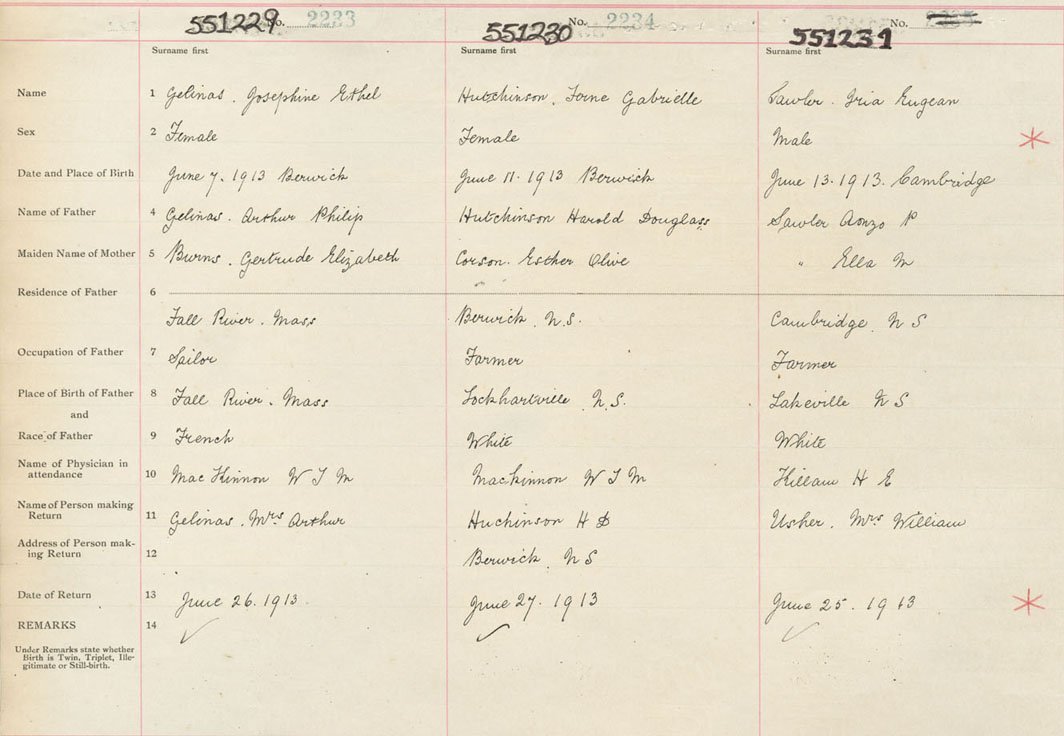 551229 No. 2233 551230 No. 2234 551231 No.
Surname first Surname first Surname first
Name 1 Gelinas. Josephine Ethel Hutchinson. Gabrielle Sawler. Eugean
Sex 2 Female Female Male
Date and Place of Birth June 7. 1913 Berwick June 11. 1913 Berwick June 13. 1913. Cambridge
Name of Father 4 Gelinas. Arthur Philip Hutchinson Harold Douglass Sawler Aonzo P
Maiden Name of Mother 5 Burns. Gertrude Elizabeth Corson. Esther Olive " Ella M
Residence of Father 6
Fall River. Mass Berwick. N.S. Cambridge N S
Occupation of Father 7 Sailor Farmer Farmer
Place of Birth of Father 8 Fall River. Mass Lockhartville N.S. Lakeville N S
and
Race of Father 9 French White White
Name of Physician in
attendance 10 MacKinnon W J M Mackinnon W J M Killam H E
Name of Person making
Return 11 Gelinas. Mrs Arthur Huchinson H D Usher. Mrs William
Address of Person mak-
ing Return 12 Berwick N S
Date of Return 13 June 26. 1913. June 27. 1913 June 25. 1913
REMARKS 14
Under Remarks state whether
Birth is Twin, Triplet, Ille-
gitimate or Still-birth.